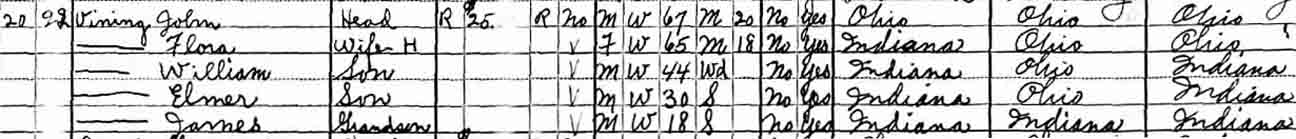 20 22 Vining John Head R 25. R No M W 67 M 20 No Yes Ohio Ohio Ohio
Flora Wife H V F W 65 M 18 No Yes Indiana Ohio Ohio
William Son V M W 44 Wd No Yes Indiana Ohio Indiana
Elmer Son V M W 30 S No Yes Indiana Ohio Indiana
James Grandson V M W 18 S No Yes Indiana Indiana Indiana